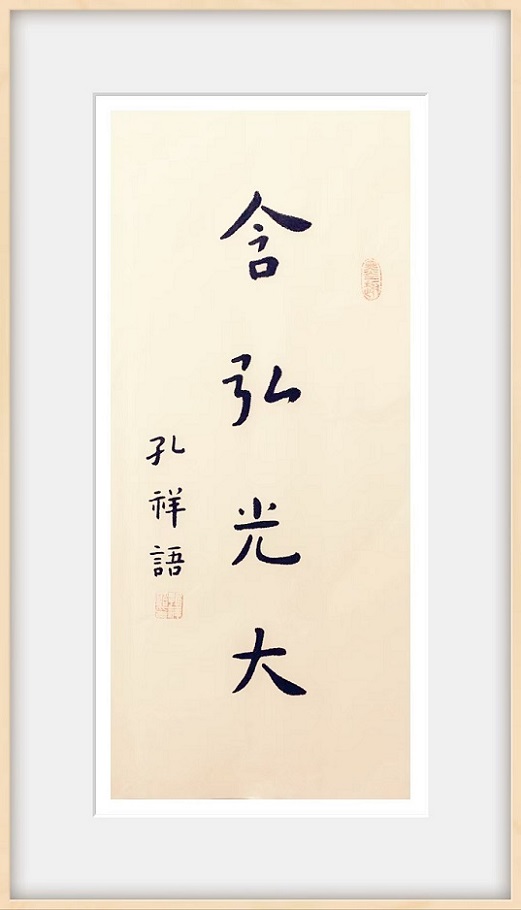 含弘光大
孔祥語